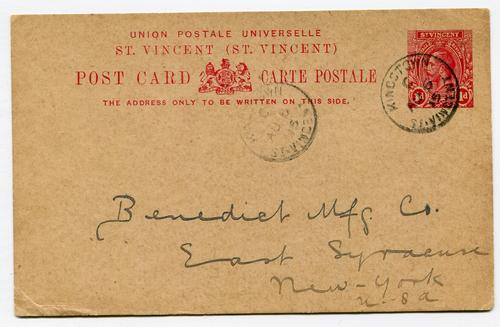 UNION POSTALE UNIVERSELLE
ST. VINCENT (ST. VINCENT)
POST CARD CARTE POSTALE
THE ADDRESS ONLY TO BE WRITTEN ON THIS SIDE.
ST VINCENT
1d 1d
KINGSTOWN
ST. VINCENT
Benedict Mfg. Co.
East Syracuse
New-York
U-Sa